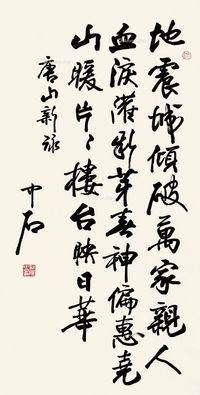 地震城傾破萬家親人
血淚灌新芽春神偏惠堯
山暖片片樓台映日華
唐山新詠
中石